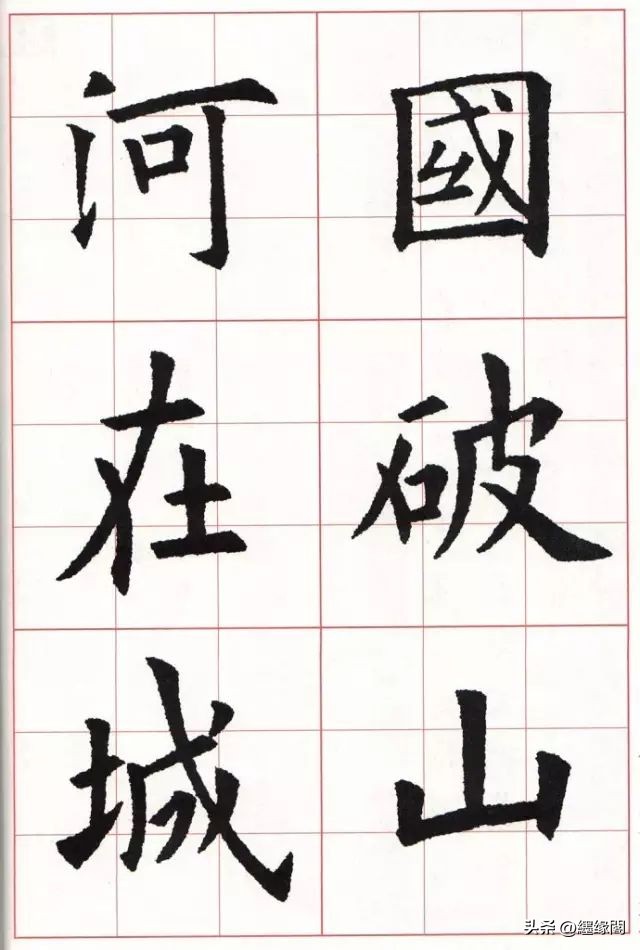 國破山
河在城
头条 @纒缘閣